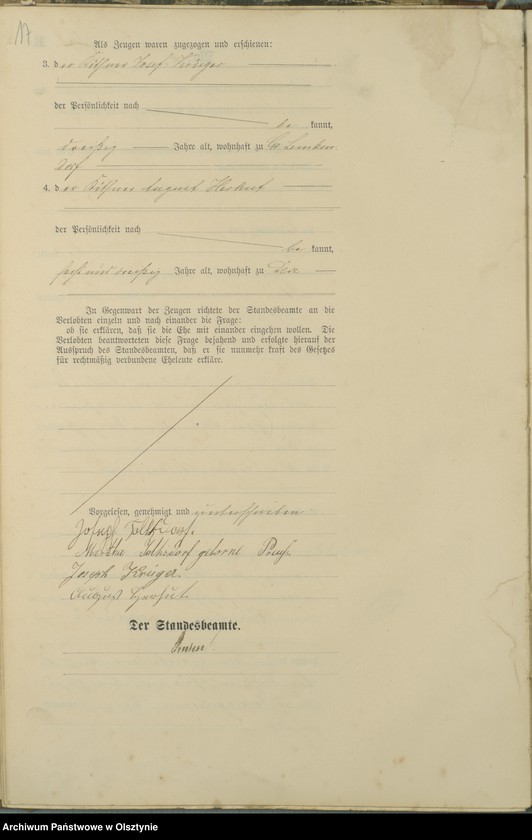 17
Als Zeugen waren zugezogen und erschienen:
3. der Käthner Josef Krüger
der Persönlichkeit nach
be kannt,
dreißig Jahre alt, wohnhaft zu Gr. Lemken
dorf
4. der Käthner August Herhut
der Persönlichkeit nach
be kannt,
sechsunddreißig Jahre alt, wohnhaft zu
In Gegenwart der Zeugen richtete der Standesbeamte an die
Verlobten einzeln und nach einander die Frage:
ob sie erklären, daß sie die Ehe mit einander eingehen wollen. Die
Verlobten beantworteten diese Frage bejahend und erfolgte hierauf der
Ausspruch des Standesbeamten, daß er sie nunmehr kraft des Gesetzes
für rechtmäßig verbundene Eheleute erkläre.
Vorgelesen, genehmigt und unterschrieben
Joseph
geborne
Joseph Krüger.
August Herhut.
Der Standesbeamte.
Archiwum Państwowe w Olsztynie